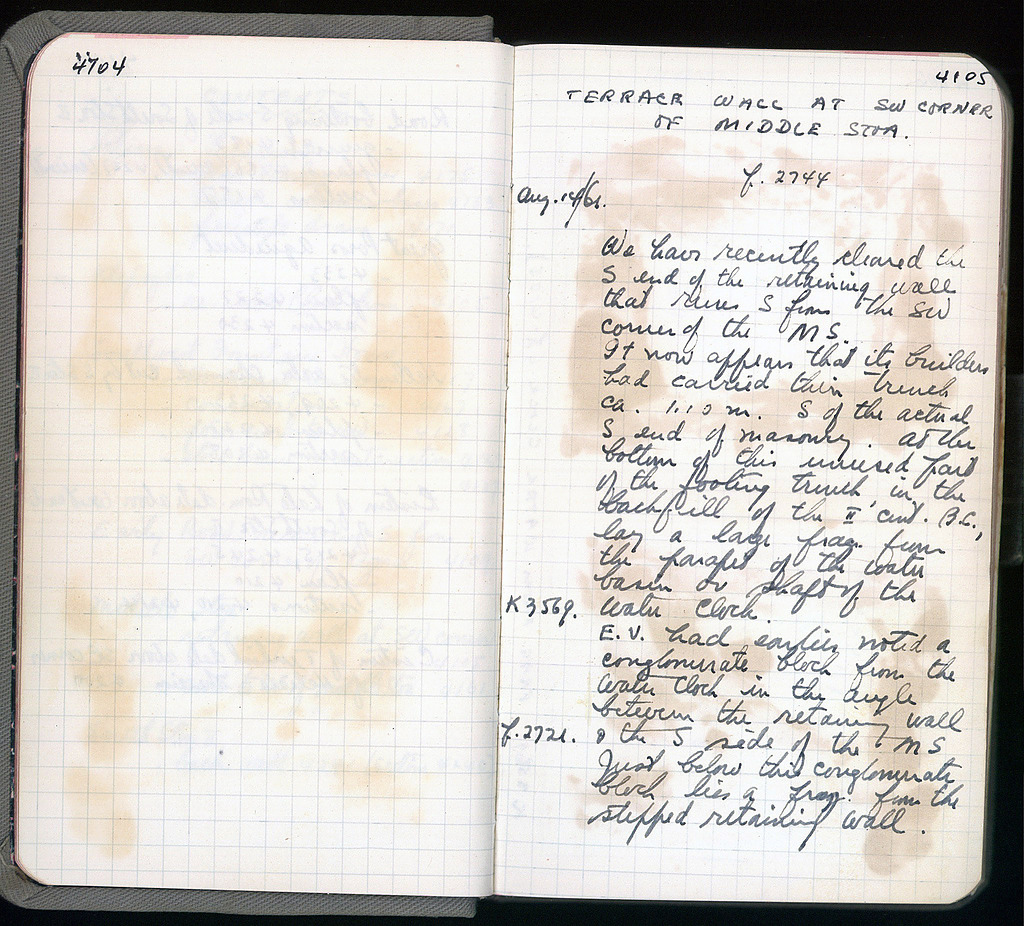 4704
4105
TERRACE WALL AT SW CORNER
OF MIDDLE STOA.
f. 2744
Aug. 14/61.
We have recently cleared the
S end of the retaining wall
that runs S from the SW
corner of the MS.
It now appears that its builders
had carried their trench
ca. 1.10 m. S of the actual
S end of masonry. At the
bottom of this unused part
of the footing trench in the
backfill of the II cent. B.C.,
lay a large frag. from
the parapet of the water
basin or shaft of the
K 3569. Water Clock.
E.V. had earlier noted a
conglomerate block from the
Water Clock in the angle
between the retaining wall
f. 2721. & the S side of the MS
Just below this conglomerate
block lies a frag. from the
stepped retaining wall.